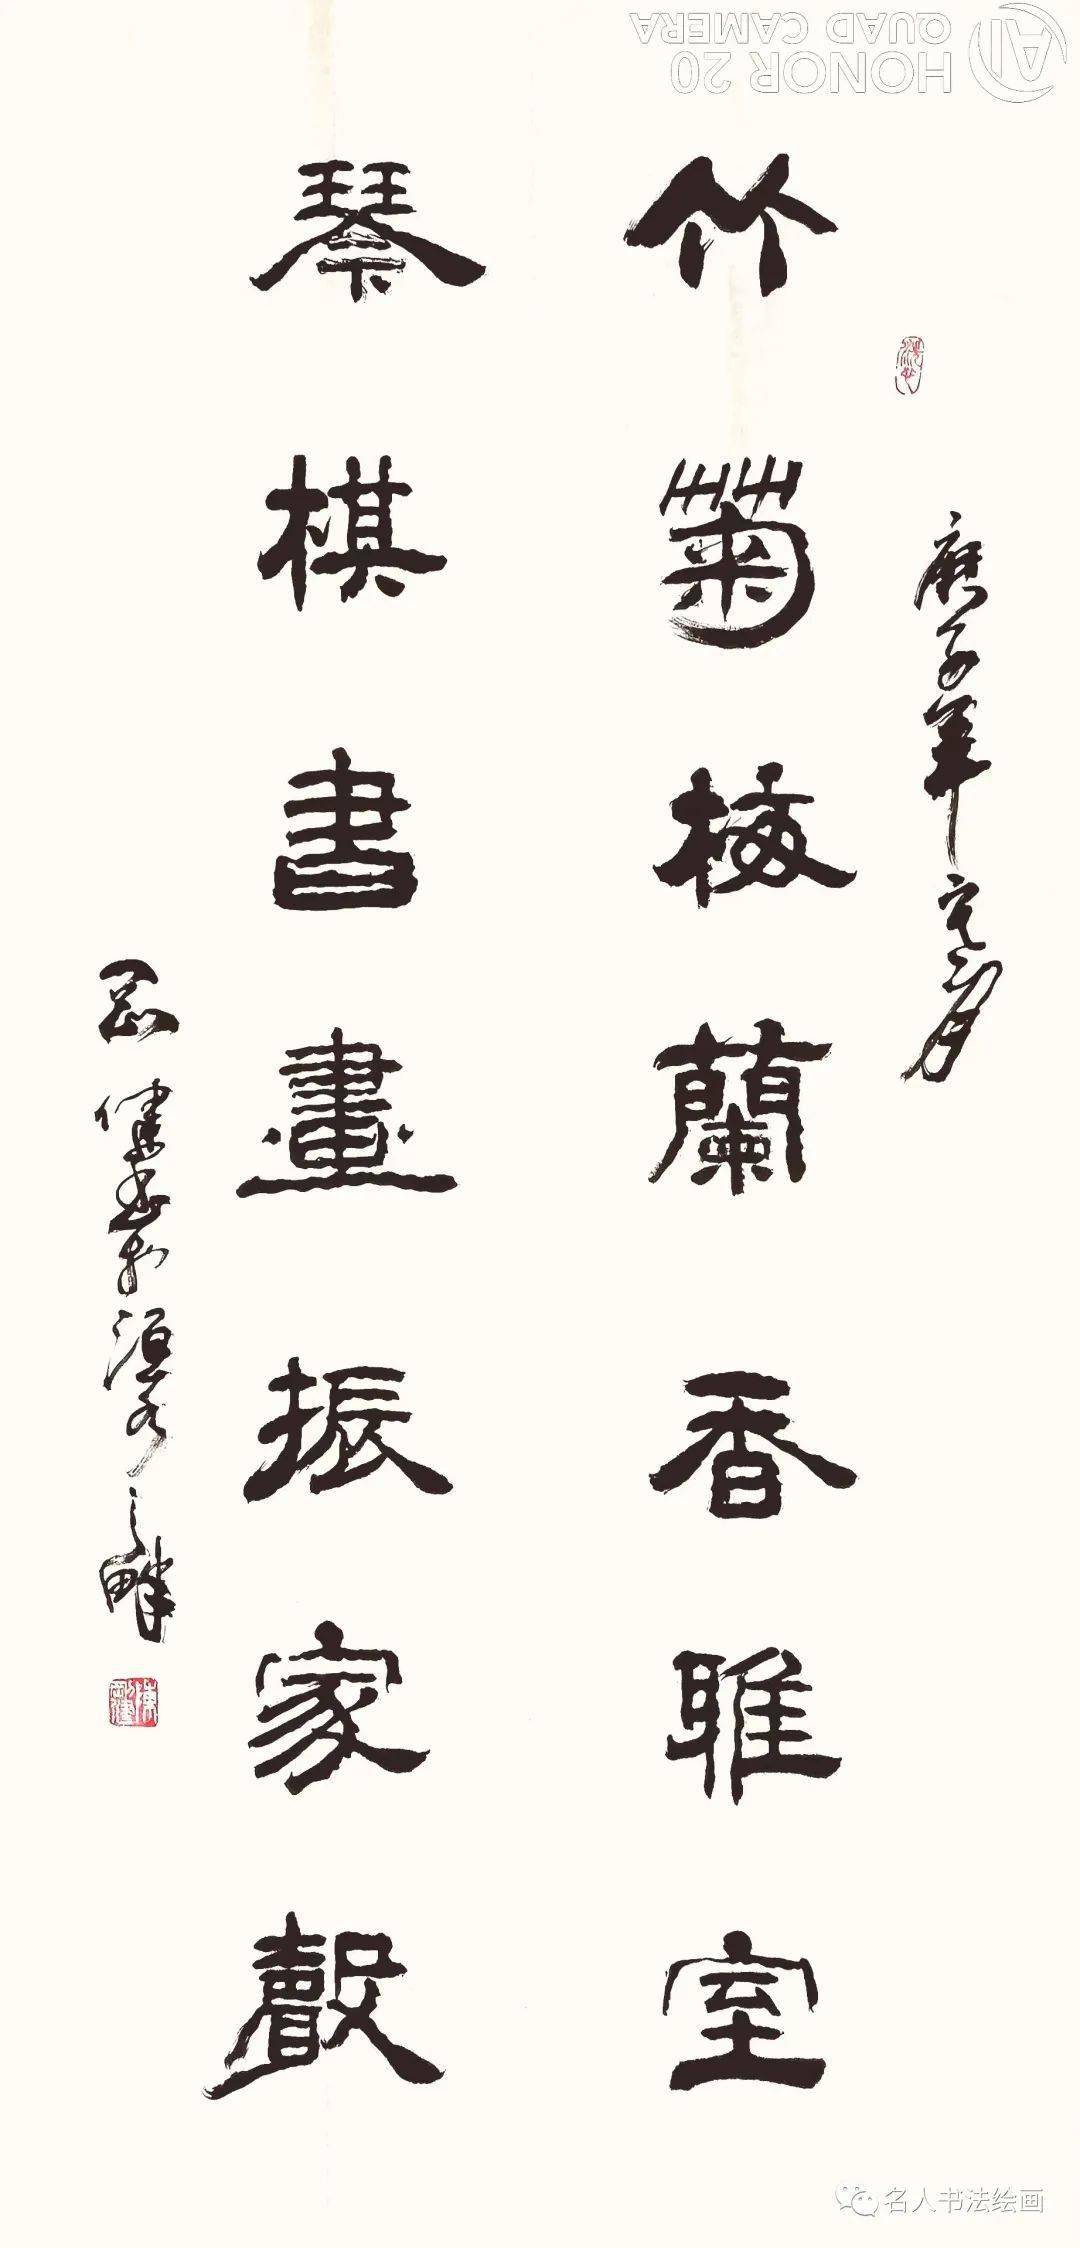 庚子年之月
竹菊梅蘭香雅室
琴棋書畫振家聲
健書於洹水之畔
HONOR 20
AI QUAD CAMERA
名人书法绘画